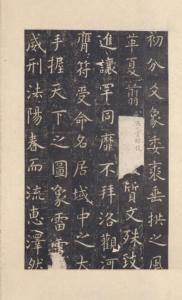 初分爻象委裘垂拱之風
革夏翦質文殊致
進讓罕同靡不拜洛觀河
膺符受命名居域中之大
手握天下之圖象雷電
威刑法陽春而流惠澤然